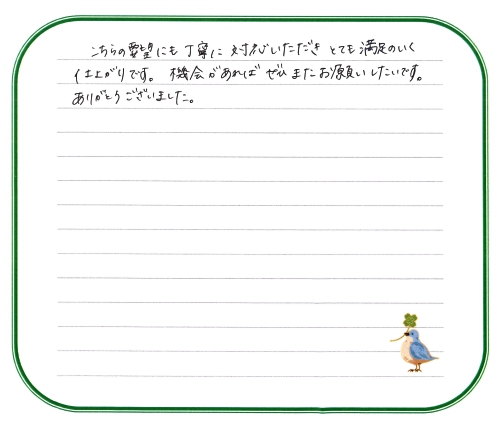 こちらの要望にも丁寧に対応いただき とても満足のいく
仕上がりです。 機会があれば ぜひ またお願いしたいです。
ありがとうございました。